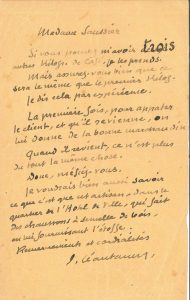 Madame Saussier
Si vous pouvez m'avoir trois
autres kilogs. de Café, je les prends.
Mais assurez-vous bien que ce
sera le même que le premier kilog.
Je dis cela par expérience.
La première fois, pour appâter
le client, et qu'il revienne, on
lui donne de la bonne marchandise
Quand il revient, ce n'est plus
du tout la même chose.
Donc, méfiez-vous.
Je voudrais bien aussi savoir
ce que c'est que cet artisan, dans le
quartier de l'Hôtel de Ville, qui fait
des chaussons à semelle de bois,
en lui fournissant l'étoffe.
Remerciements et cordialités
P. Léautaud